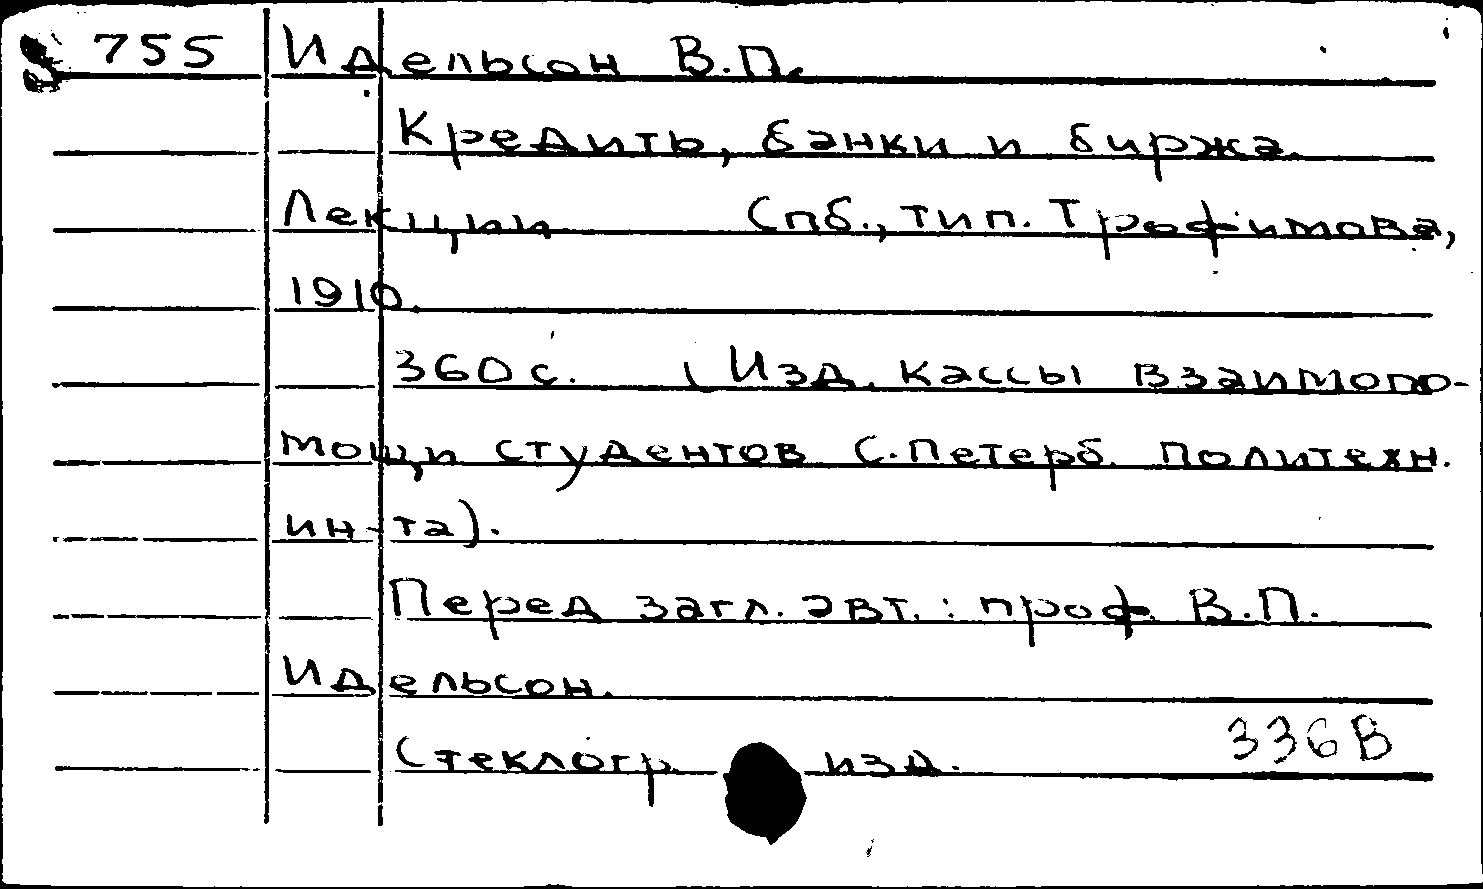 755 Идельсон В.П.
Кредить, банки и биржа.
Лекции Спб., тип. Трофимова,
1910.
360 с. (Изд. кассы взаимопо-
мощи студентов С.Петерб. политехн.
ин-та).
Перед загл. авт.: проф. В.П.
Идельсон.
Стеклогр изд.
336В